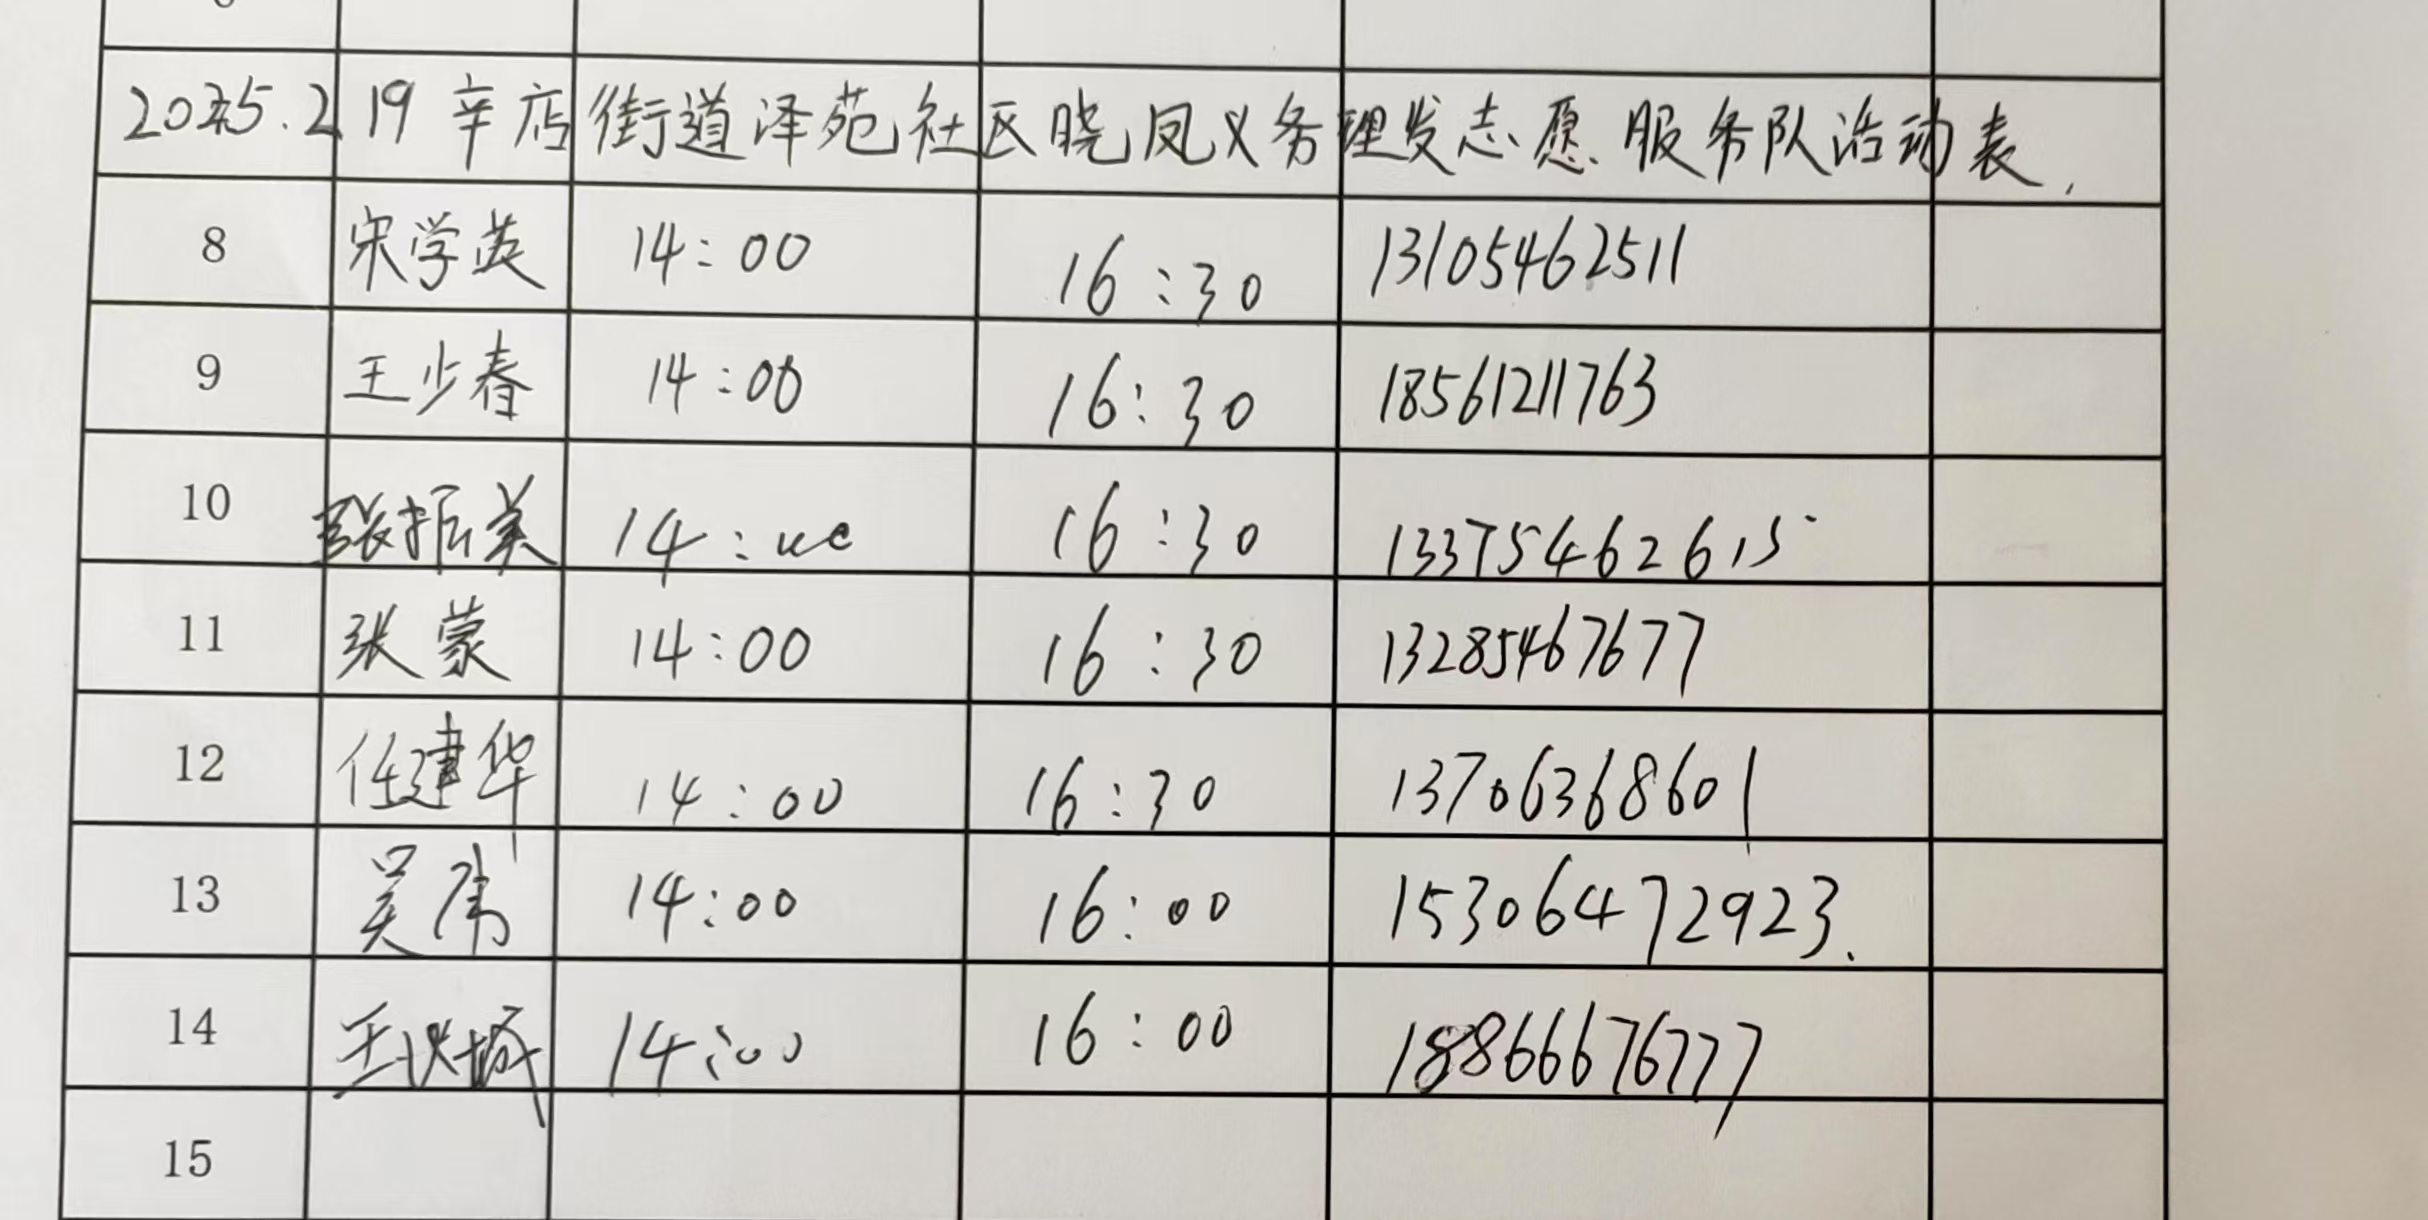 2025.2.19 辛店街道泽苑社区晓凤义务理发志愿服务队活动表.
8 宋学英 14:00 16:30 13105462511
9 王少春 14:00 16:30 18561211763
10 张振美 14:00 16:30 13375462615
11 张蒙 14:00 16:30 13285467677
12 任建华 14:00 16:30 13706368601
13 吴伟 14:00 16:00 15306472923.
14 王洪城 14:00 16:00 18866676777
15